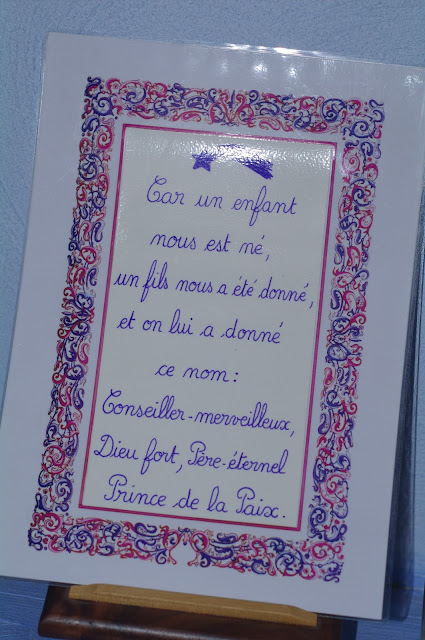 Car un enfant
nous est né,
un fils nous a été donné,
et on lui a donné
ce nom :
Conseiller-merveilleux,
Dieu fort, Père-éternel
Prince de la Paix.